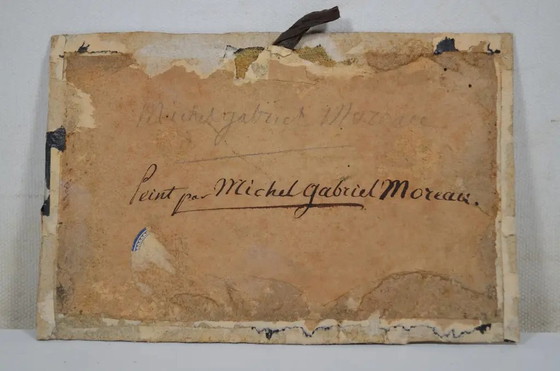 Michel gabriel Moreau
Peint par Michel gabriel Moreau.